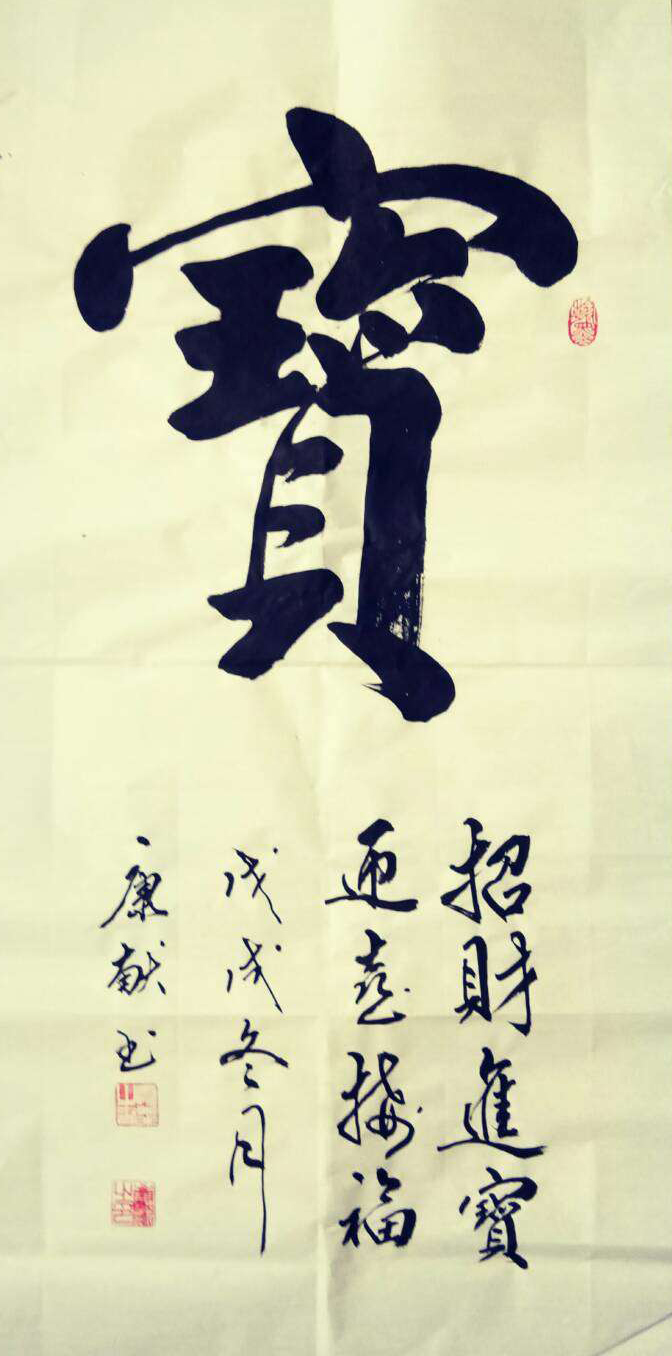 寶
招財進寶
迎喜接福
戊戌冬月
康獻书